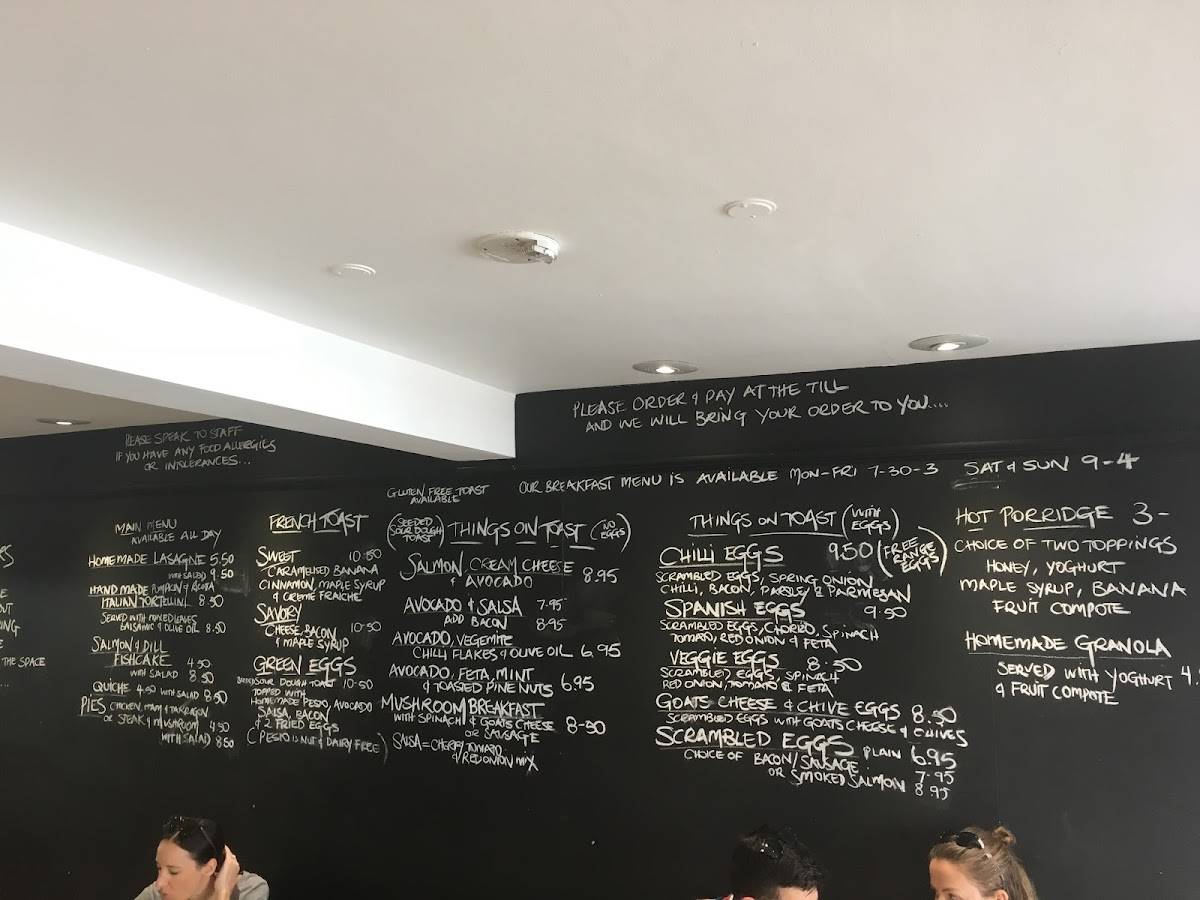 PLEASE ORDER & PAY AT THE TILL
AND WE WILL BRING YOUR ORDER TO YOU....
PLEASE SPEAK TO STAFF
IF YOU HAVE ANY FOOD ALLERGIES
OR INTOLERANCES...
OUR BREAKFAST MENU IS AVAILABLE MON-FRI 7-30-3 SAT & SUN 9-4
THE SPACE
MAIN MENU
AVAILABLE ALL DAY
HOMEMADE LASAGNE 5.50
WITH SALAD 9.50
HAND MADE PUMPKIN & RICOTTA
ITALIAN TORTELLINI 8.50
SERVED WITH MIXED LEAVES
BALSAMIC & OLIVE OIL 8.50
SALMON & DILL
FISHCAKE 4.50
WITH SALAD 8.50
QUICHE 4.50 WITH SALAD 8.50
PIES CHICKEN, HAM & TARRAGON
OR STEAK & MUSHROOM 4.50
WITH SALAD 8.50
FRENCH TOAST
SWEET 10.50
CARAMELISED BANANA
CINNAMON, MAPLE SYRUP
& CREME FRAICHE
SAVORY
CHEESE, BACON 10-50
& MAPLE SYRUP
GREEN EGGS
SOUR DOUGH TOAST 10-50
TOPPED WITH
HOMEMADE PESTO, AVOCADO
SALSA, BACON
& 2 FRIED EGGS
(PESTO IS NUT & DAIRY FREE)
GLUTEN FREE TOAST
AVAILABLE
(SEEDED
SOUR DOUGH
TOAST)
THINGS ON TOAST (NO
EGGS)
SALMON, CREAM CHEESE
& AVOCADO 8.95
AVOCADO & SALSA 7.95
ADD BACON 8.95
AVOCADO, VEGEMITE
CHILLI FLAKES & OLIVE OIL 6.95
AVOCADO, FETA, MINT
& TOASTED PINE NUTS 6.95
MUSHROOM BREAKFAST
WITH SPINACH & GOATS CHEESE 8-50
OR SAUSAGE
SALSA = CHERRY TOMATO
& RED ONION MIX
THINGS ON TOAST (WITH
EGGS)
CHILLI EGGS 9.50 (FREE
RANGE
EGGS)
SCRAMBLED EGGS, SPRING ONION
CHILLI, BACON, PARSLEY & PARMESAN
SPANISH EGGS 9.50
SCRAMBLED EGGS, CHORIZO, SPINACH
TOMATO, RED ONION & FETA
VEGGIE EGGS 8.50
SCRAMBLED EGGS, SPINACH
RED ONION, TOMATO & FETA
GOATS CHEESE & CHIVE EGGS 8.50
SCRAMBLED EGGS WITH GOATS CHEESE & CHIVES
SCRAMBLED EGGS PLAIN 6.95
CHOICE OF BACON/SAUSAGE 7.95
OR SMOKED SALMON 8.95
HOT PORRIDGE 3-
CHOICE OF TWO TOPPINGS
HONEY, YOGHURT
MAPLE SYRUP, BANANA
FRUIT COMPOTE
HOMEMADE GRANOLA
SERVED WITH YOGHURT 4.
& FRUIT COMPOTE